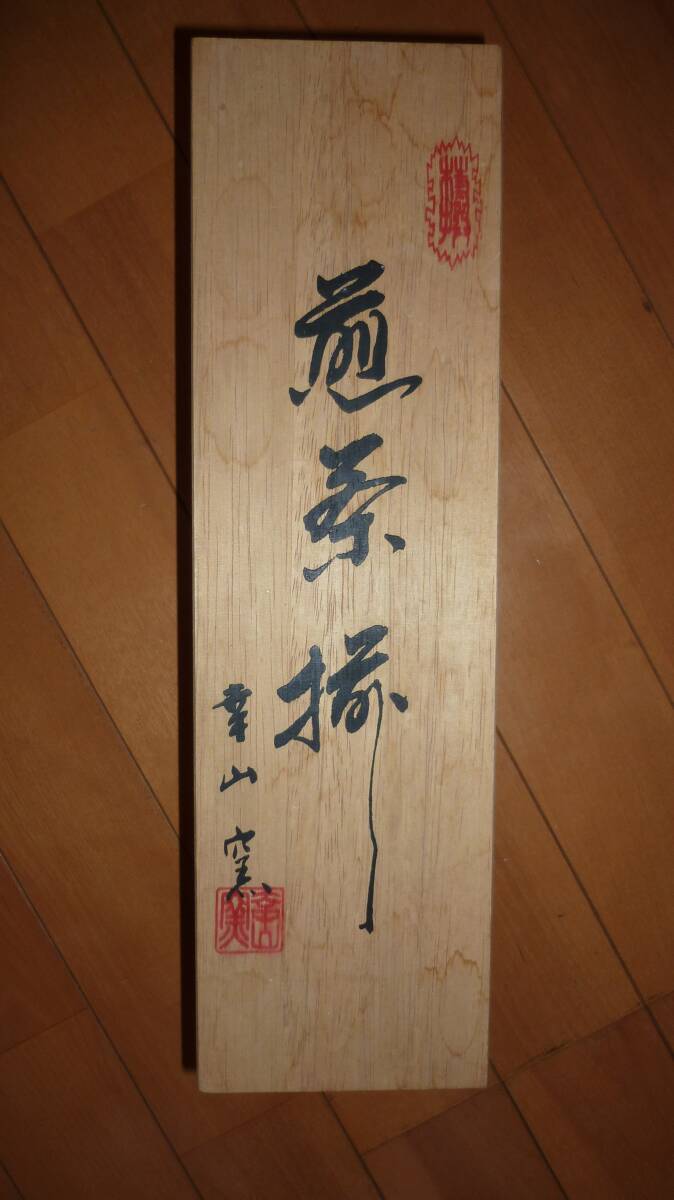 煎茶揃
幸山窯